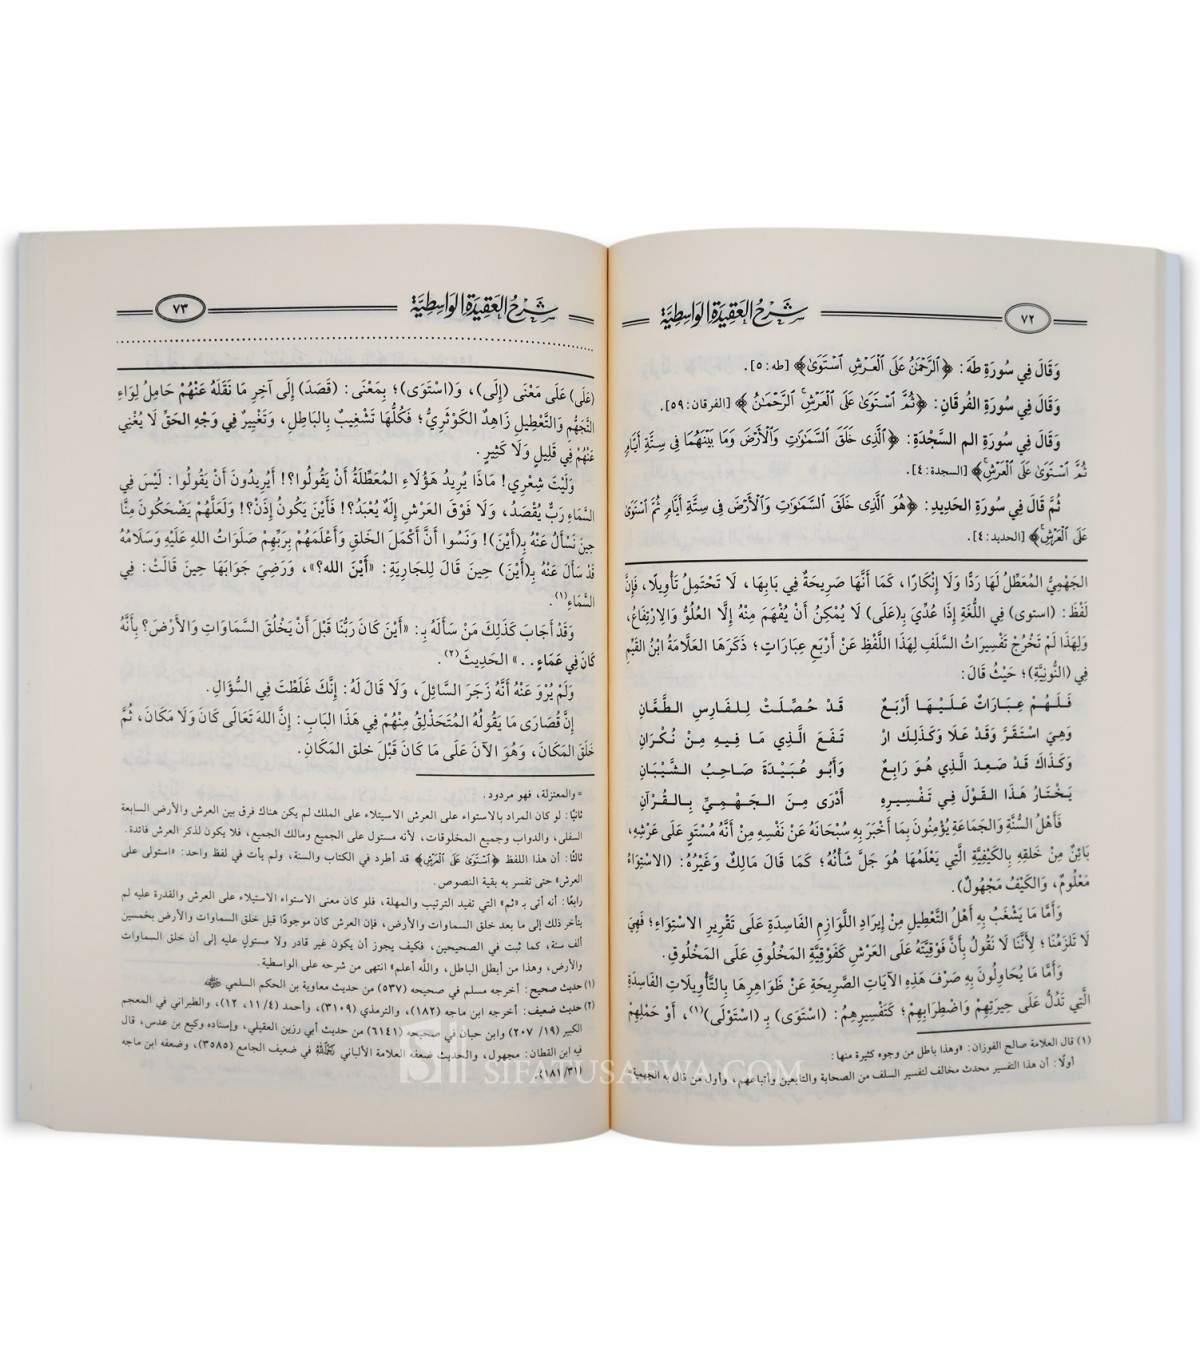 ٧٢
شرح العقيدة الواسطية
وَقَالَ فِي سُورَةِ طَهَ: ﴿الرَّحْمَٰنُ عَلَى الْعَرْشِ اسْتَوَىٰ﴾ [طه: ٥].
وَقَالَ فِي سُورَةِ الفُرقَانِ: ﴿ثُمَّ اسْتَوَىٰ عَلَى الْعَرْشِ الرَّحْمَٰنُ﴾ [الفرقان: ٥٩].
وَقَالَ فِي سُورَةِ الم السَّجْدَةِ: ﴿الَّذِي خَلَقَ السَّمَاوَاتِ وَالْأَرْضَ وَمَا بَيْنَهُمَا فِي سِتَّةِ أَيَّامٍ
ثُمَّ اسْتَوَىٰ عَلَى الْعَرْشِ﴾ [السجدة: ٤].
ثُمَّ قَالَ فِي سُورَةِ الحَدِيدِ: ﴿هُوَ الَّذِي خَلَقَ السَّمَاوَاتِ وَالْأَرْضَ فِي سِتَّةِ أَيَّامٍ ثُمَّ اسْتَوَىٰ
عَلَى الْعَرْشِ﴾ [الحديد: ٤].
الجَهْمِيُّ المُعَطِّلُ لَهَا رَدًّا وَلَا إِنْكَارًا، كَمَا أَنَّهَا صَرِيحَةٌ فِي بَابِهَا، لَا تَحْتَمِلُ تَأْوِيلًا، فَإِنَّ
لَفْظَ: (استوى) فِي اللُّغَةِ إِذَا عُدِّيَ بِـ(عَلَى) لَا يُمْكِنُ أَنْ يُفْهَمَ مِنْهُ إِلَّا العُلُوُّ وَالِارْتِفَاعُ،
وَلِهَذَا لَمْ تَخْرُجْ تَفْسِيرَاتُ السَّلَفِ لِهَذَا اللَّفْظِ عَنْ أَرْبَعِ عِبَارَاتٍ؛ ذَكَرَهَا العَلَّامَةُ ابْنُ القَيِّمِ
فِي (النُّونِيَّةِ)؛ حَيْثُ قَالَ:
فَلَهُمْ عِبَارَاتٌ عَلَيْهَا أَرْبَعٌ قَدْ حُصِّلَتْ لِلفَارِسِ الطَّعَّانِ
وَهِيَ اسْتَقَرَّ وَقَدْ عَلَا وَكَذَلِكَ ارْ تَفَعَ الَّذِي مَا فِيهِ مِنْ نُكْرَانِ
وَكَذَاكَ قَدْ صَعِدَ الَّذِي هُوَ رَابِعٌ وَأَبُو عُبَيْدَةَ صَاحِبُ الشَّيْبَانِ
يَخْتَارُ هَذَا القَوْلَ فِي تَفْسِيرِهِ أَدْرَى مِنَ الجَهْمِيِّ بِالقُرْآنِ
فَأَهْلُ السُّنَّةِ وَالجَمَاعَةِ يُؤْمِنُونَ بِمَا أَخْبَرَ بِهِ سُبْحَانَهُ عَنْ نَفْسِهِ مِنْ أَنَّهُ مُسْتَوٍ عَلَى عَرْشِهِ،
بَائِنٌ مِنْ خَلْقِهِ بِالكَيْفِيَّةِ الَّتِي يَعْلَمُهَا هُوَ جَلَّ شَأْنُهُ؛ كَمَا قَالَ مَالِكٌ وَغَيْرُهُ: (الاسْتِوَاءُ
مَعْلُومٌ، وَالكَيْفُ مَجْهُولٌ).
وَأَمَّا مَا يَشْغَبُ بِهِ أَهْلُ التَّعْطِيلِ مِنْ إِيرَادِ اللَّوَازِمِ الفَاسِدَةِ عَلَى تَقْرِيرِ الاسْتِوَاءِ؛ فَهِيَ
لَا تَلْزَمُنَا؛ لِأَنَّنَا لَا نَقُولُ بِأَنَّ فَوْقِيَّتَهُ عَلَى العَرْشِ كَفَوْقِيَّةِ المَخْلُوقِ عَلَى المَخْلُوقِ.
وَأَمَّا مَا يُحَاوِلُونَ بِهِ صَرْفَ هَذِهِ الآيَاتِ الصَّرِيحَةِ عَنْ ظَوَاهِرِهَا بِالتَّأْوِيلَاتِ الفَاسِدَةِ
الَّتِي تَدُلُّ عَلَى حِيرَتِهِمْ وَاضْطِرَابِهِمْ؛ كَتَفْسِيرِهِمْ: (اسْتَوَى) بِـ (اسْتَوْلَى)(١)، أَوْ حَمْلِهِمْ
(١) قال العلامة صالح الفوزان: «وهذا باطل من وجوه كثيرة منها:
أولًا: أن هذا التفسير محدث مخالف لتفسير السلف من الصحابة والتابعين وأتباعهم، وأول من قال به الجهمية=
شرح العقيدة الواسطية
٧٣
(عَلَى) عَلَى مَعْنَى (إِلَى)، وَ(اسْتَوَى)؛ بِمَعْنَى: (قَصَدَ) إِلَى آخِرِ مَا نَقَلَهُ عَنْهُمْ حَامِلُ لِوَاءِ
التَّجَهُّمِ وَالتَّعْطِيلِ زَاهِدٌ الكَوْثَرِيُّ؛ فَكُلُّهَا تَشْغِيبٌ بِالبَاطِلِ، وَتَغْيِيرٌ فِي وَجْهِ الحَقِّ لَا يُغْنِي
عَنْهُمْ فِي قَلِيلٍ وَلَا كَثِيرٍ.
وَلَيْتَ شِعْرِي! مَاذَا يُرِيدُ هَؤُلَاءِ المُعَطِّلَةُ أَنْ يَقُولُوا؟! أَيُرِيدُونَ أَنْ يَقُولُوا: لَيْسَ فِي
السَّمَاءِ رَبٌّ يُقْصَدُ، وَلَا فَوْقَ العَرْشِ إِلَهٌ يُعْبَدُ؟! فَأَيْنَ يَكُونُ إِذَنْ؟! وَلَعَلَّهُمْ يَضْحَكُونَ مِنَّا
حِينَ نَسْأَلُ عَنْهُ بِـ(أَيْنَ)! وَنَسُوا أَنَّ أَكْمَلَ الخَلقِ وَأَعْلَمَهُمْ بِرَبِّهِمْ صَلَوَاتُ اللهِ عَلَيْهِ وَسَلَامُهُ
قَدْ سَأَلَ عَنْهُ بِـ(أَيْنَ) حِينَ قَالَ لِلجَارِيَةِ: «أَيْنَ الله؟»، وَرَضِيَ جَوَابَهَا حِينَ قَالَتْ: فِي
السَّمَاءِ(١).
وَقَدْ أَجَابَ كَذَلِكَ مَنْ سَأَلَهُ بِـ: «أَيْنَ كَانَ رَبُّنَا قَبْلَ أَنْ يَخْلُقَ السَّمَاوَاتِ وَالأَرْضَ؟ بِأَنَّهُ
كَانَ فِي عَمَاءٍ..» الحَدِيثَ(٢).
وَلَمْ يُرْوَ عَنْهُ أَنَّهُ زَجَرَ السَّائِلَ، وَلَا قَالَ لَهُ: إِنَّكَ غَلَطْتَ فِي السُّؤَالِ.
إِنَّ قُصَارَى مَا يَقُولُهُ المُتَحَذْلِقُ مِنْهُمْ فِي هَذَا البَابِ: إِنَّ اللهَ تَعَالَى كَانَ وَلَا مَكَانَ، ثُمَّ
خَلَقَ المَكَانَ، وَهُوَ الآنَ عَلَى مَا كَانَ قَبْلَ خلقِ المَكَانِ.
= والمعتزلة، فهو مردود.
ثانيًا: لو كان المراد بالاستواء على العرش الاستيلاء على الملك لم يكن هناك فرق بين العرش والأرض السابعة
السفلى، والدواب وجميع المخلوقات، لأنه مستول على الجميع ومالك الجميع، فلا يكون لذكر العرش فائدة.
ثالثًا: أن هذا اللفظ ﴿اسْتَوَىٰ عَلَى الْعَرْشِ﴾ قد أطرد في الكتاب والسنة، ولم يأت في لفظ واحد: «استولى على
العرش» حتى تفسر به بقية النصوص.
رابعًا: أنه أتى بـ «ثم» التي تفيد الترتيب والمهلة، فلو كان معنى الاستواء الاستيلاء على العرش والقدرة عليه لم
يتأخر ذلك إلى ما بعد خلق السماوات والأرض، فإن العرش كان موجودًا قبل خلق السماوات والأرض بخمسين
ألف سنة، كما ثبت في الصحيحين، فكيف يجوز أن يكون غير قادر ولا مستولٍ عليه إلى أن خلق السماوات
والأرض، وهذا من أبطل الباطل، والله أعلم» انتهى من شرحه على الواسطية.
(١) حديث صحيح: أخرجه مسلم في صحيحه (٥٣٧) من حديث معاوية بن الحكم السلمي
(٢) حديث ضعيف: أخرجه ابن ماجه (١٨٢)، والترمذي (٣١٠٩)، وأحمد (٤/١١، ١٢)، والطبراني في المعجم
الكبير (١٩/ ٢٠٧) وابن حبان في صحيحه (٦١٤١) من حديث أبي رزين العقيلي، وإسناده وكيع بن عدس، قال
فيه ابن القطان: مجهول، والحديث ضعفه العلامة الألباني في ضعيف الجامع (٣٥٨٥)، وضعفه ابن ماجه
(١٨١/٣١).
SIFATUSAFWA.COM